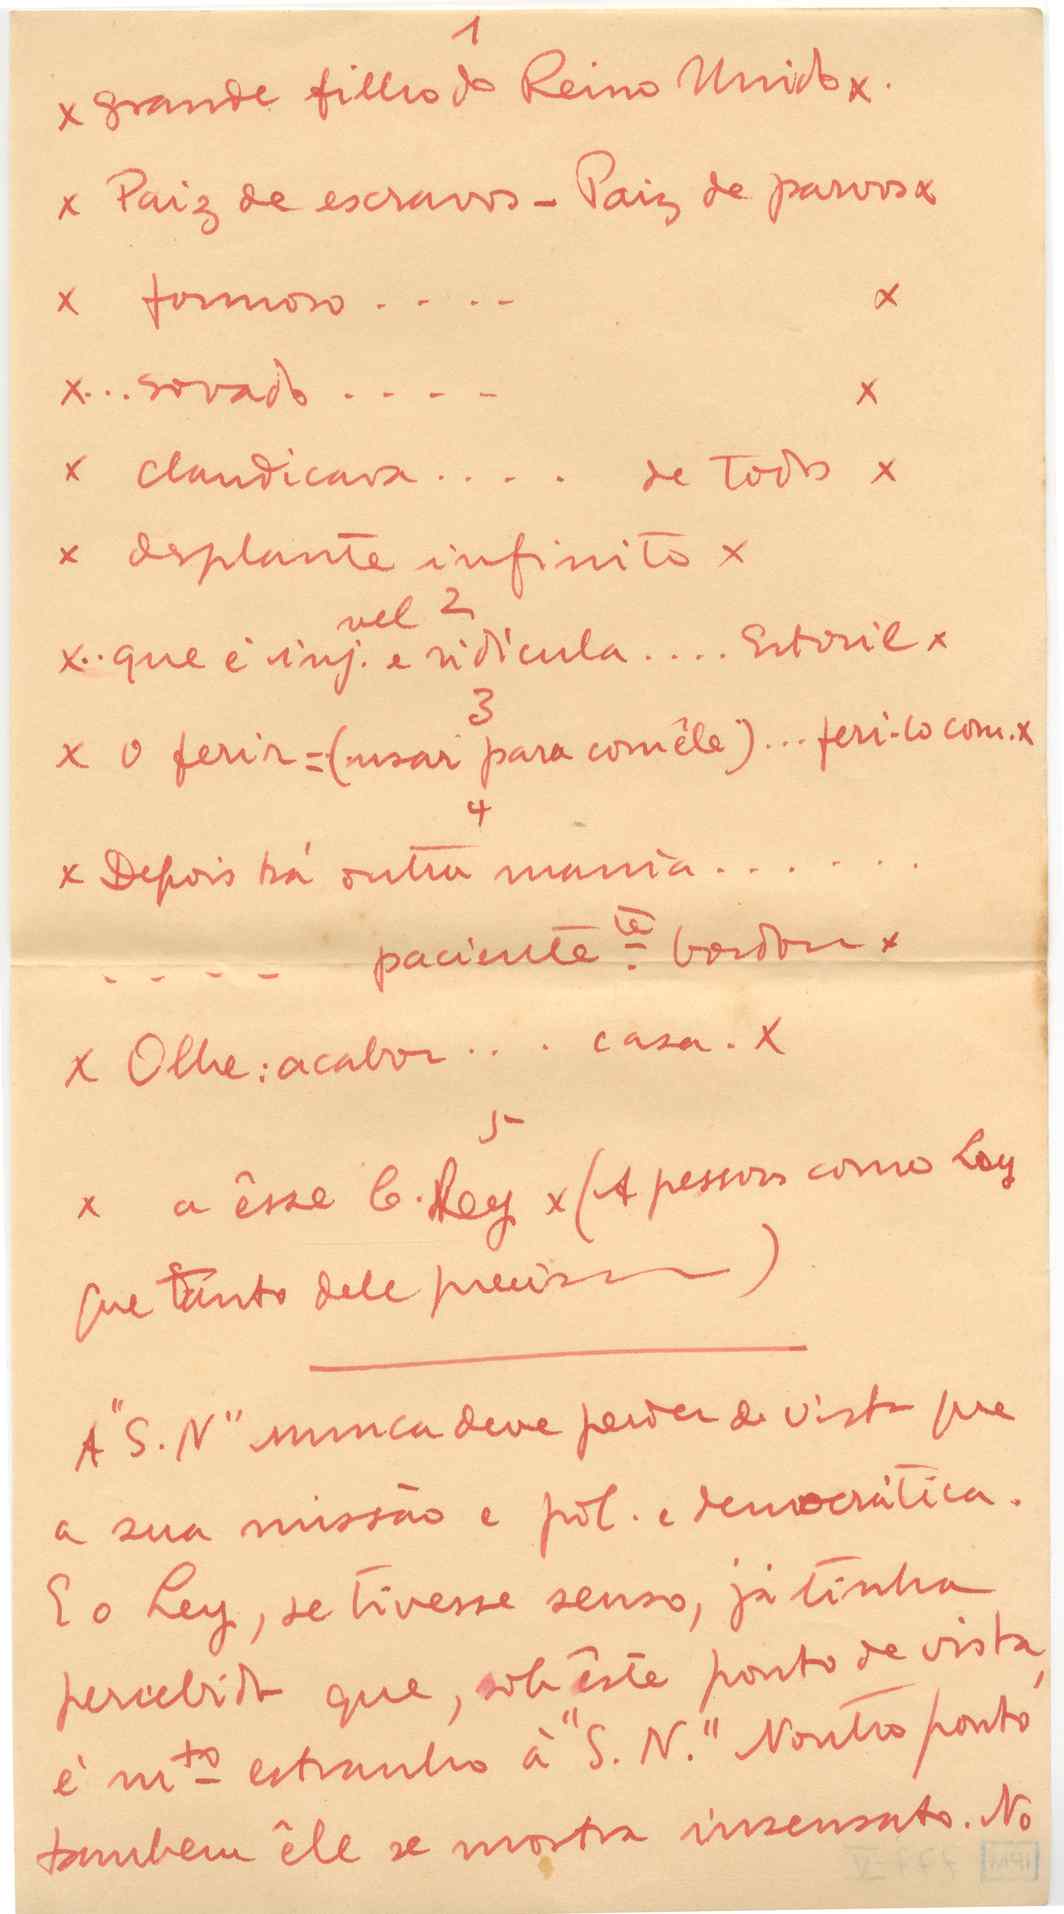 1
x grande filho do Reino Unido x.
x Paiz de escravos - Paiz de parvos x
x formoso . . - - x
x... sovado . - - - x
x claudicava . . . . de todos x
x desplante infinito x
vel 2
x.. que é inj. e ridicula .... Estoril x
3
x O ferir = (usar para com êle) ... feri-lo com. x
4
x Depois há outra mania . . . . . . .
. - - - paciente te bordou x
x Olhe: acabou . . . casa. x
5
x a êsse C. Rey x (A pessoas como Ley
que tanto dele precisam)
A "S.N" nunca deve perder de vista que
a sua missão é pol. e democrática.
E o Ley, se tivesse senso, já tinha
percebido que, sob êste ponto de vista,
é mto estranho à "S.N." Noutro ponto
tambem êle se mostra insensato. No
IPM 777-V